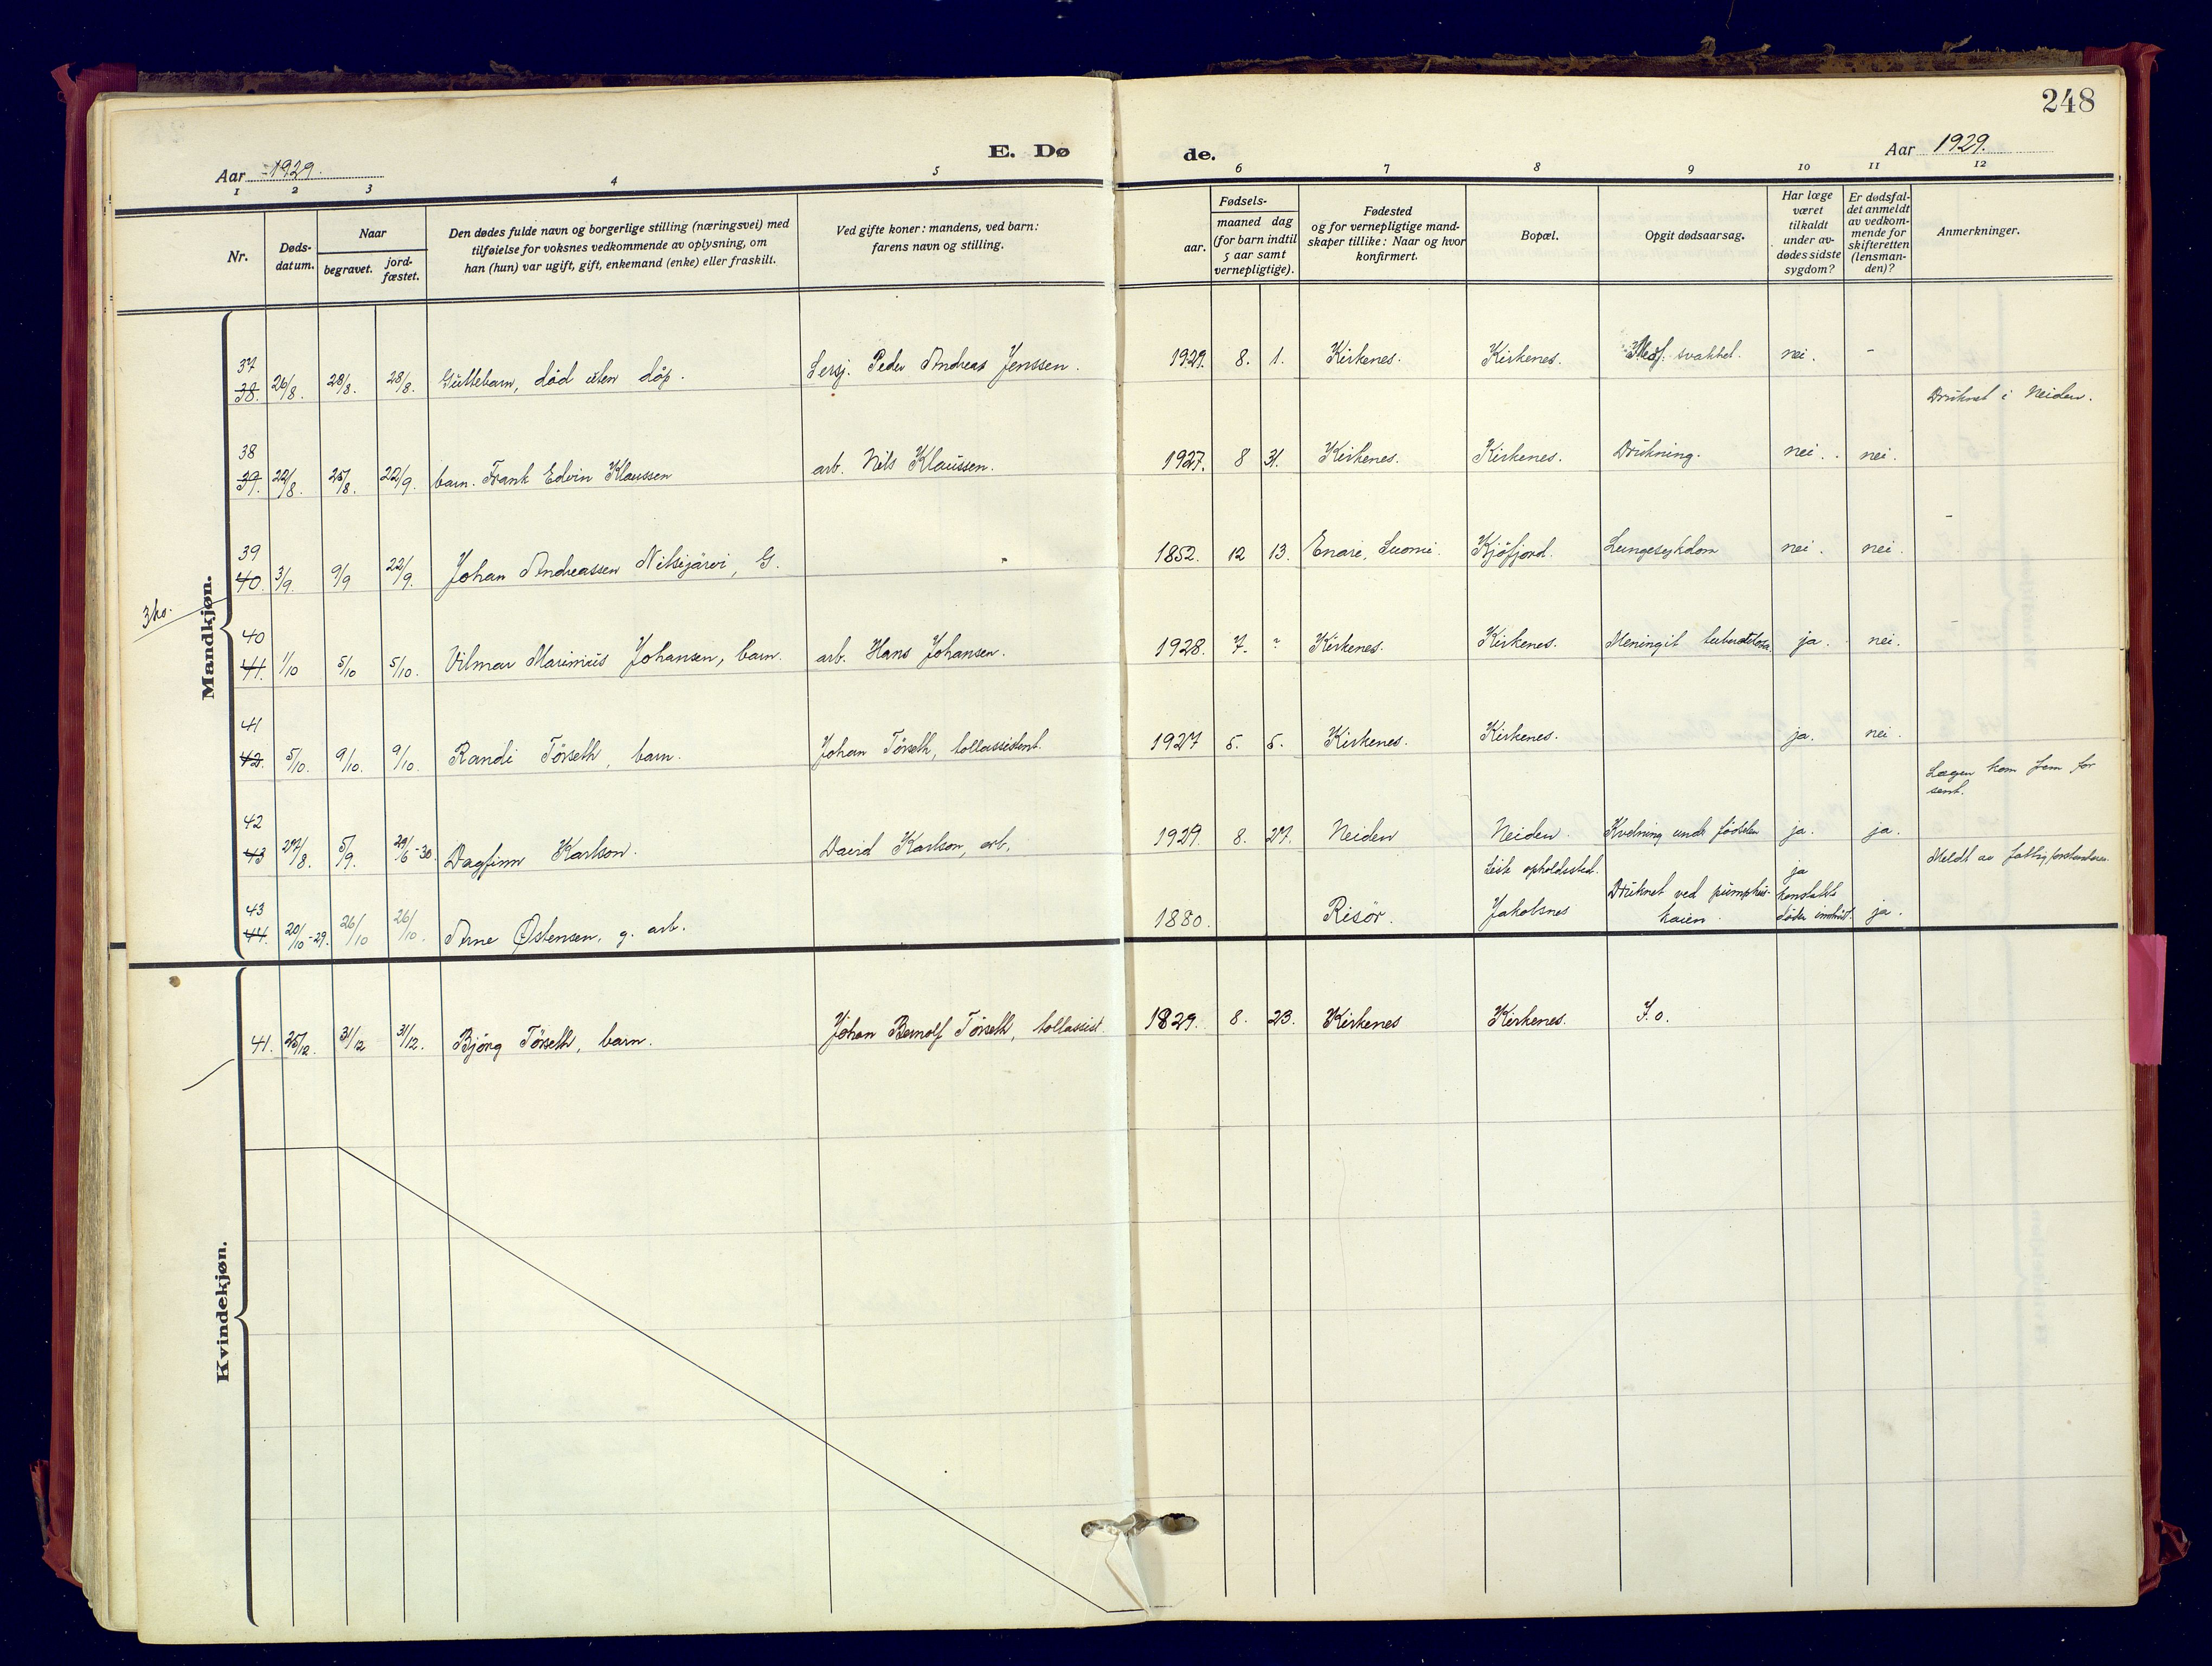 248
Aar 1929.
E. Dø
de.
Aar 1929.
1 2 3 4 5 6 7 8 9 10 11 12
Nr.
Døds-
datum.
Naar
begravet.
jord-
fæstet.
Den dødes fulde navn og borgerlige stilling (næringsvei) med
tilføielse for voksnes vedkommende av oplysning, om
han (hun) var ugift, gift, enkemand (enke) eller fraskilt.
Ved gifte koner: mandens, ved barn:
farens navn og stilling.
Fødsels-
aar.
maaned dag
(for barn indtil
5 aar samt
vernepligtige).
Fødested
og for vernepligtige mand-
skaper tillike: Naar og hvor
konfirmert.
Bopæl.
Opgit dødsaarsag.
Har læge
været
tilkaldt
under av-
dødes sidste
sygdom?
Er dødsfal-
det anmeldt
av vedkom-
mende for
skifteretten
(lensman-
den)?
Anmerkninger.
Mandkjøn.
37
38. 26/8. 28/8. 28/8. Guttebarn, död uten döp. Peder Andreas Jenssen. 1929. 8. 1. Kirkenes. Kirkenes. Medf. svakhet. nei. -
Druknet i Neiden.
38
39. 22/8. 25/8. 22/9. barn. Frank Edvin Klaussen arb. Nils Klaussen. 1927. 8 31. Kirkenes. Kirkenes. Drukning. nei. nei.
-
39
40. 3/9. 9/9 22/9. Johan Andreassen Nitsijärvi, G. 1852. 12 13. Enare, Suomi. Kjöfjord. Lungesykdom nei. nei.
3 ko.
40
41. 1/10 5/10 5/10. Vilmar Marinius Johansen, barn. arb. Hans Johansen. 1928. 7. ? Kirkenes. Kirkenes. Meningit tuberculosa. ja. nei.
41
42. 5/10. 9/10. 9/10. Randi Törseth, barn. Johan Törseth, tollassistent. 1927 5. 5. Kirkenes. Kirkenes. ja. nei.
Lægen kom frem for
sent.
42
43 27/8. 5/9. 29/6-30. Dagfinn Karlson. David Karlson, arb. 1929. 8. 27. Neiden Neiden. Kvelning under födselen ja. ja.
Meldt av fattigforstanderen.
43
44. 20/10-29. 26/10 26/10. Arne Østensen, g. arb. 1880. Risör. Siste opholdssted.
Jakobsnes
Druknet ved pumphus-
kaien.
ja
konstaterte
döden ja.
Kvindekjøn.
41. 25/12. 31/12 31/12. Björg Törseth, barn. Johan Bernolf Törseth, tollassist. 1829. 8. 23. Kirkenes Kirkenes.